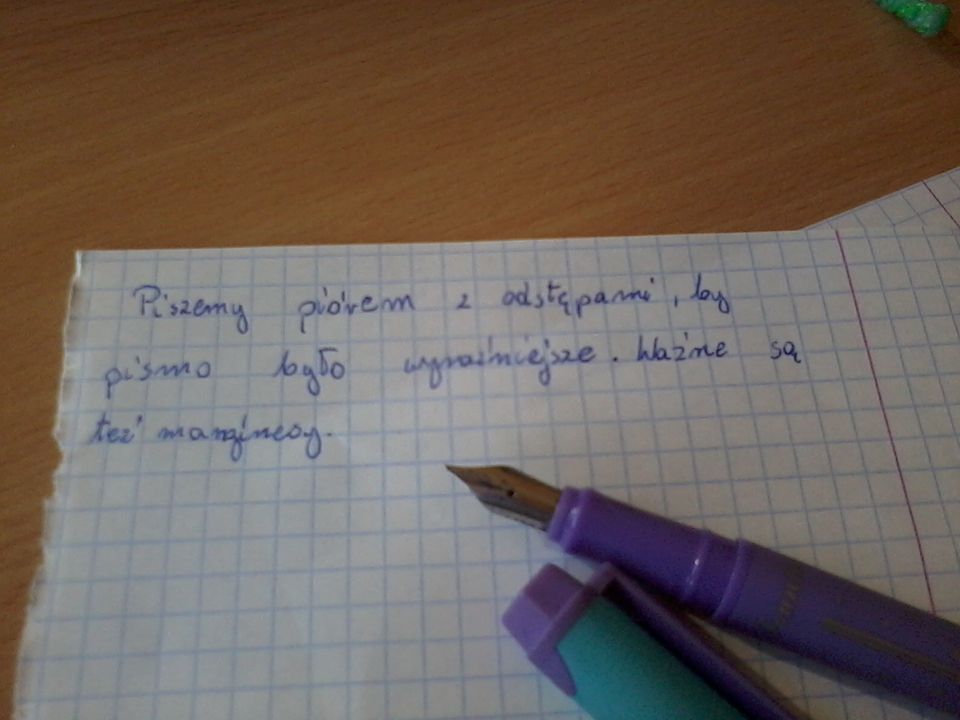 Piszemy piórem z odstępami, by
pismo było wyraźniejsze. Ważne są
też marginesy.